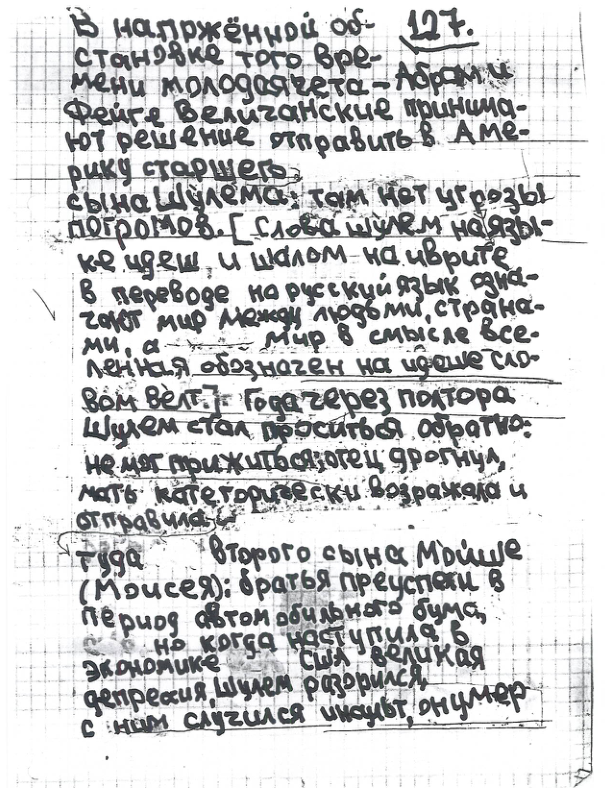 В напржённой об- 127.
становке того вре-
мени молодая чета - Абрам и
Фейге Величанские принима-
ют решение отправить в Аме-
рику старшего
сына Шулема: там нет угрозы
погромов. [Слова шулем на язы-
ке идеш и шалом на иврите
в переводе на русский язык озна-
чают мир между людьми, страна-
ми, а мир в смысле все-
ленная обозначен на идеше сло-
вом велт.] Года через полтора
Шулем стал проситься обратно:
не мог прижиться; отец дрогнул,
мать категорически возражала и
отправила
туда второго сына Мойше
(Моисея): братья преуспели в
период автомобильного бума,
но когда наступила в
экономике США великая
депрессия, Шулем разорился,
с ним случился инсульт, он умер